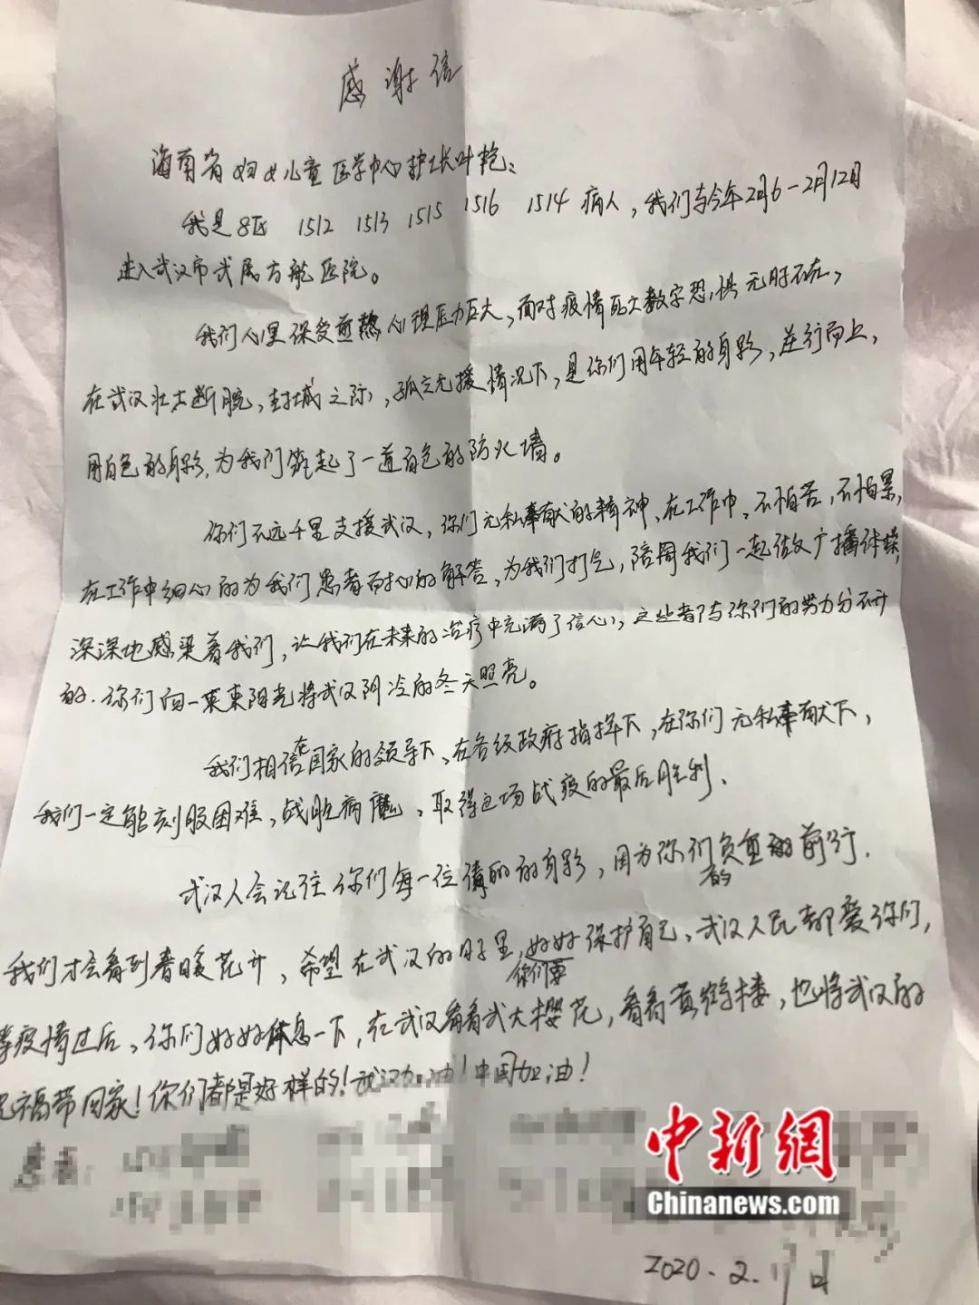 感谢信
海南省妇女儿童医学中心护士长叶艳：
我是8区 1512 1513 1515 1516 1514 病人，我们与今年2月6－2月12日
进入武汉市武展方舱医院。
我们心里深受煎熬心理压力巨大，面对疫情死亡数字恐惧无时不在，
在武汉壮士断腕，封城之际，孤立无援情况下，是你们用年轻的身影，逆行而上，
用白色的身影，为我们筑起了一道白色的防火墙。
你们不远千里支援武汉，你们无私奉献的精神、在工作中，不怕苦，不怕累，
在工作中细心的为我们患者耐心的解答，为我们打气，陪同我们一起做广播体操，
深深地感染着我们，让我们在未来的治疗中充满了信心，这些都与你们的努力分不开
的．你们向一束束阳光将武汉阴冷的冬天照亮。
我们相信在国家的领导下、在各级政府指挥下，在你们无私奉献下，
我们一定能刻服困难，战胜病魔，取得这场战疫的最后胜利．
武汉人会记住你们每一位的身影，因为你们的负重前行．
我们才会看到春暖花开，希望在武汉的日子里，你们要好好保护自己、武汉人民都爱你们，
等疫情过后，你们好好休息一下，在武汉看看武大樱花，看看黄鹤楼，也将武汉的
祝福带回家！你们都是好样的！武汉加油！中国加油！
中新網
Chinanews.com
2020.2.日